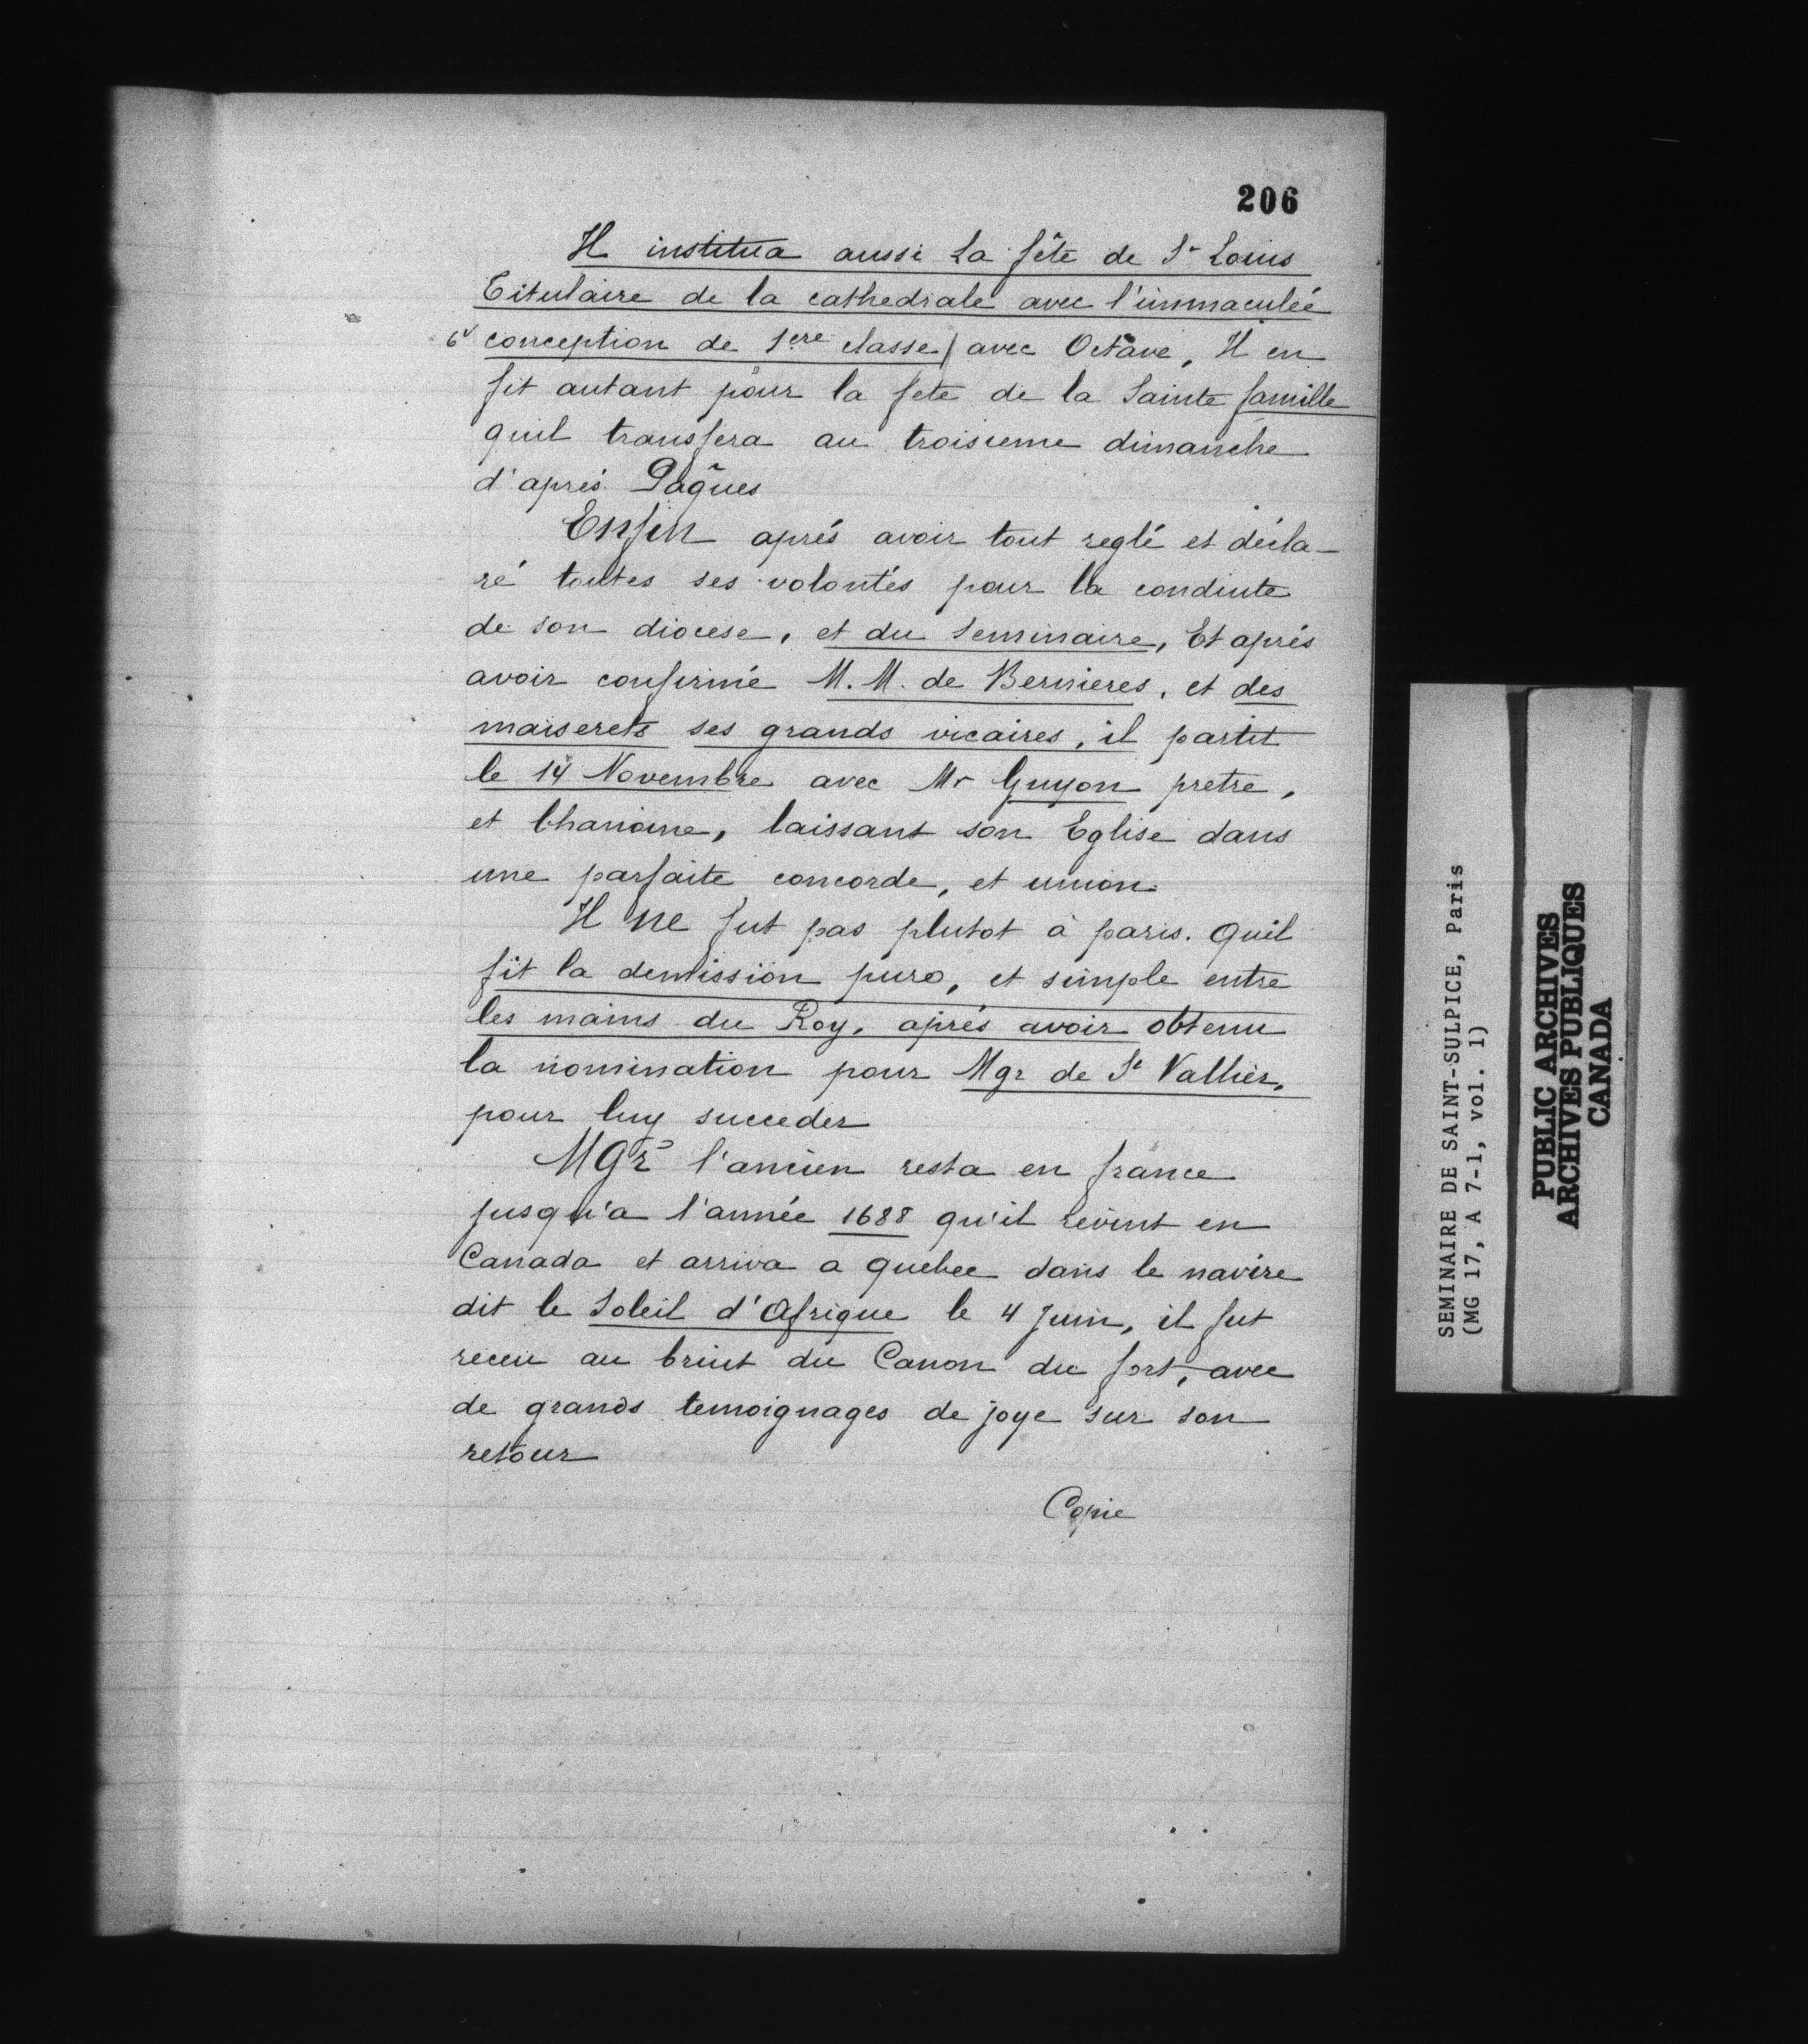 206
Il institua aussi la fête de St Louis
Titulaire de la cathedrale avec l'immaculéé
6v conception de 1ere classe/ avec Octave, Il en
fit autant pour la fete de la Sainte famille
quil transfera au troisieme dimanche
d'aprés Pâques
Enfin aprés avoir tout reglé et décla-
ré toutes ses volontés pour la conduite
de son diocese, et du Seminaire, Et aprés
avoir confirmé M.M. de Bernieres, et des
maiserets ses grands vicaires, il partit
le 14 Novembre avec Mr Guyon pretre,
et Chanoine, laissant son Eglise dans
une parfaite concorde, et union
Il ne fut pas plutot à paris. Quil
fit la demission pure, et simple entre
les mains du Roy, aprés avoir obtenu
la nomination pour Mgr de St Vallier,
pour luy succeder
Mgr l'ancien resta en france
jusqu'a l'année 1688 qu'il revint en
Canada et arriva a quebec dans le navire
dit le Soleil d'Afrique le 4 Juin, il fut
receu au bruit du Canon du fort, avec
de grands temoignages de joye sur son
retour
Copie
SEMINAIRE DE SAINT-SULPICE, Paris
(MG 17, A 7-1, vol. 1)
PUBLIC ARCHIVES
ARCHIVES PUBLIQUES
CANADA